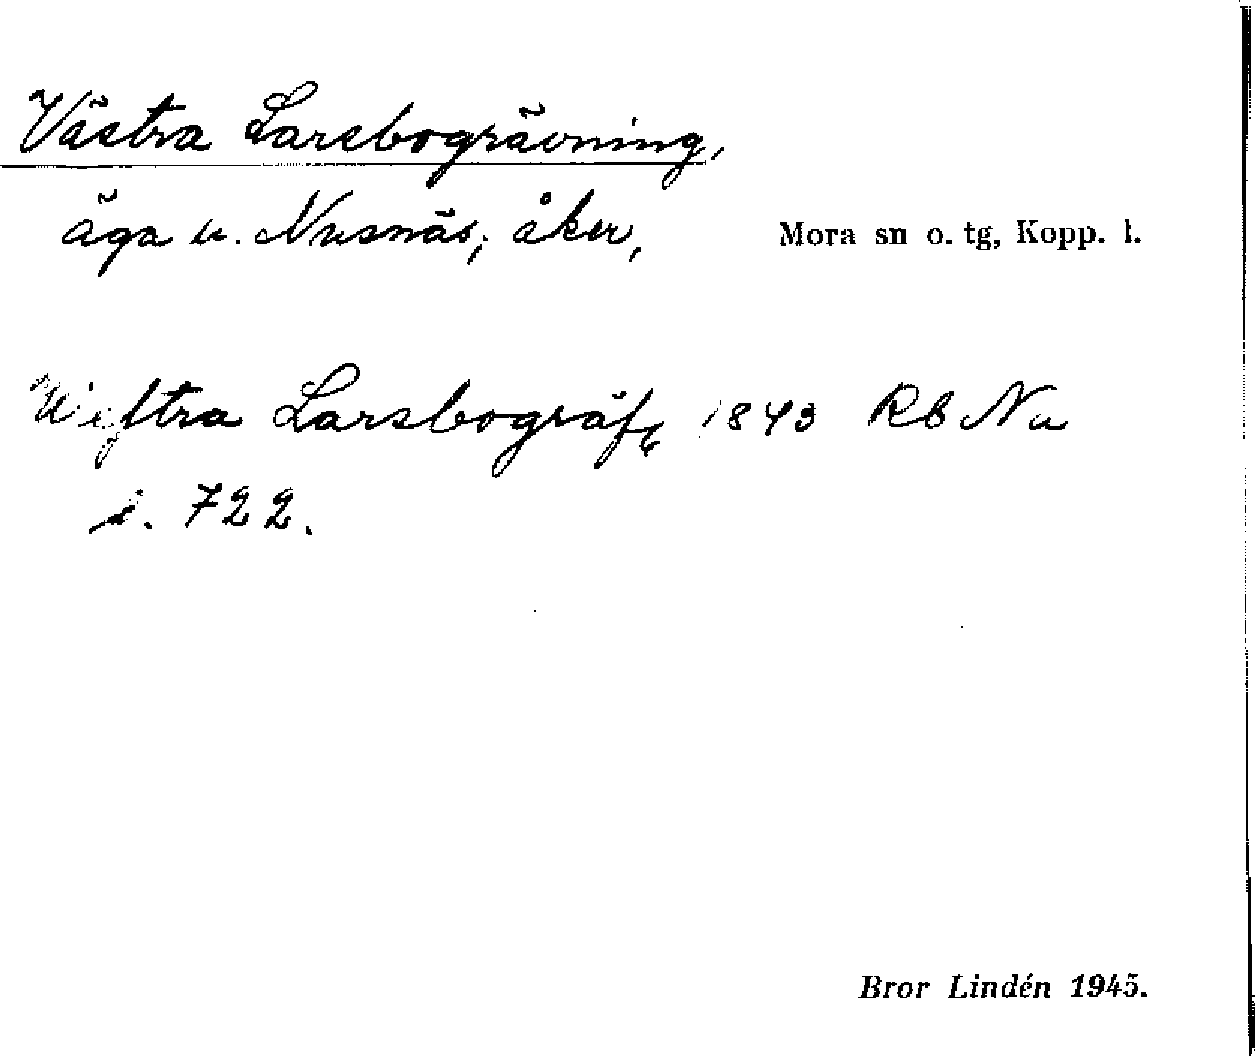 Västra Larsbogrävning,
äga u. Nusnäs; åker, Mora sn o. tg, Kopp. l.
Westra Larsbogräfg 1843 RbNu
s. 722.
Bror Lindén 1945.